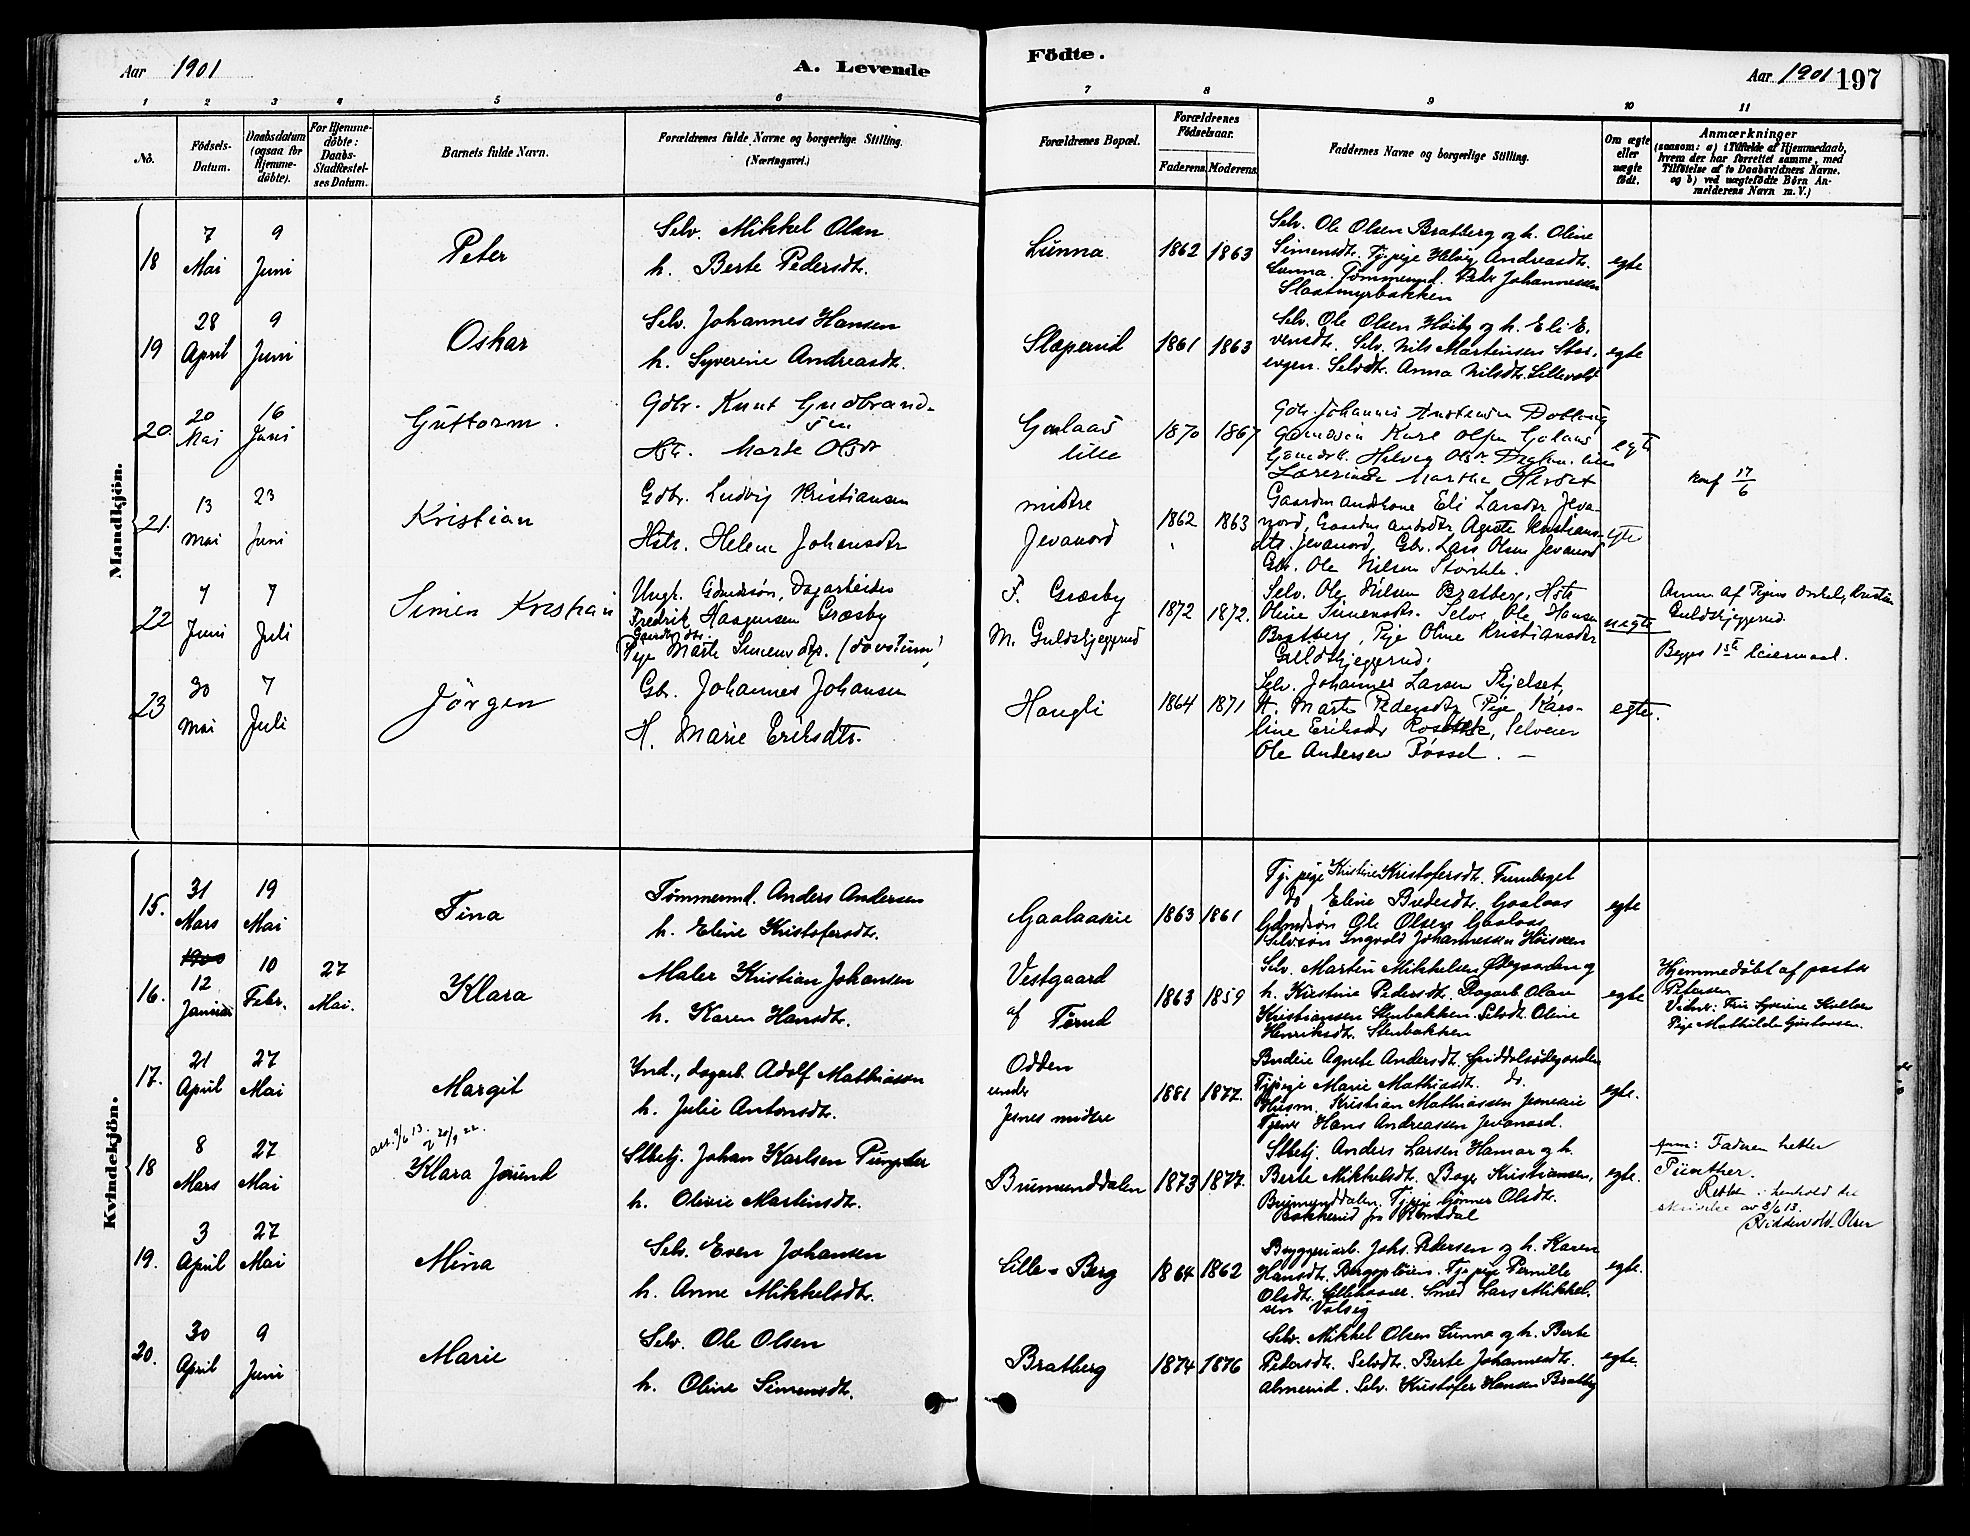 Aar 1901
A. Levende
Födte.
Aar 1901 197
1 2 3 4 5 6 7 8 9 10 11
No.
Födsels-
Datum.
Daabsdatum
(ogsaa for
Hjemme-
döbte).
For Hjemme-
döbte:
Daabs-
Stadfæstel-
ses Datum.
Barnets fulde Navn.
Forældrenes fulde Navne og borgerlige Stilling.
(Næringsvei.)
Forældrenes Bopæl.
Forældrenes
Födselsaar.
Faderens. Moderens.
Faddernes Navne og borgerlige Stilling.
Om ægte
eller
uægte
födt.
Anmærkninger
(saasom: a) i Tilfælde af Hjemmedaab,
hvem der har forrettet samme, med
Tilföielse af to Daabsvidners Navne.
og b) ved uægtefödte Börn An-
melderens Navn m. V.)
Mandkjön.
18
7
Mai
9
Juni
Peter
Selv. Mikkel Olsen
h. Berte Pedersdtr.
Lunna
1862 1863
Selv. Ole Olsen Bratberg og h. Oline
Simensdtr. Tj.pige Helvig Andreasdtr.
Lunna. Tømmermd. Peder Johannessen
Slaatmyrbakken
egte
19
28
April
9
Juni
Oskar
Selv. Johannes Hansen
h. Syverine Andreasdtr.
Slæperud
1861 1863
Selv. Ole Olsen Høiby og h. Eli E-
vensdtr. Selv. Nils Martinsen Stor-
evgen. Selvdtr. Anna Nilsdtr. Lillevold
egte
20.
20
Mai
16
Juni
Guttorm.
Gdbr. Knut Gudbrand-
sen
Hstr. Marte Olsdr
Gaalaas
lille
1870 1867
Gdbr. Johannes
Gdmdsøn Karl Olsen Golaas
Gdmdtr. Helvig Olsdr
Lærerinde Marthe
egte
konf 17/6
21.
13
mai
23
Juni
Kristian
Gdbr. Ludvig Kristiansen
Hstr. Helene Johansdtr
midtre
Jevanord
1862 1863
Gaardmandskone Eli Larsdtr Jeva-
nord, Gaardmandsdtr Agnete Kristians-
dtr. Jevanord, Gbr. Lars Olsen Jevanord
Gbr. Ole Nilsen
egte
22
7
Juni
7
Juli
Simen Kristian
Ungk. Gdmdsøn, Dagarbeider
Fredrik Haagensen Græsby
Gaardmdsdtr.
Pige Marte Simensdtr.
F. Græsby
M. Guldskjeggerud
1872 1872.
Selv. Ole Nilsen Bratberg, Hstr
Oline Simensdtr. Selv. Ole Hansen
Bratberg, Pige Oline Kristiansdtr
Guldskjeggerud.
uegte
Anm. af Pigens Onkel, Kristian
Guldskjeggerud.
Begges 1ste leiermaal.
23
30
Mai
7
Juli
Jörgen
Gbr. Johannes Johansen
H. Marie Eriksdtr.
Haugli
1864 1871
Selv. Johannes Larsen Skjelset,
H. Marte Pedersdtr, Pige Karo-
line Eriksdtr, Selveier
Ole Andersen Fossel. —
egte.
Kvindekjön.
15.
31
Mars
19
Mai
Tina
Tømmermd. Anders Andersen
h. Eline Kristofersdtr.
Gaalaaseie
1863 1861
Tj. pige Kristine Kristofersdtr. Tumberget
do Eline Bredesdtr. Gaalaas
Gdmdsön Ole Olsen Gaalaas
Selvsön Ingvold Johannessen
egte
16.
1900
12
Januar
10
Febr.
27
Mai.
Klara
Maler Kristian Johansen
h. Karen Hansdtr.
Vestgaard
af Tørud
1863 1859
Selv. Martin Mikkelsen Ødegaarden og
h. Kristine Pedersdtr. Dagarb. Olave
Kristiansen Stenbakken. Selvdt. Oline
Henriksdt. Stenbakken
egte
Hjemmedöbt af pastor
Petersen
Vidner: Frü Syverine
Pige Mathilde Gustavsen.
17.
21
April
27
Mai
Margit
Ind., dagarb. Adolf Mathiassen
h. Julie Antonsdtr.
Odden
under
Jesnes midtre
1881 1877.
Budeie Agnete Andersdt.
Tj.pige Marie Mathiasdt. do.
Husm. Kristian Mathiassen Jesneseie
Tjener Hans Andreassen Jevanord.
egte.
18
8
Mars
27
Mai
att. 9/6 13.
20/9 22.
Klara Jörund
Stbetj. Johan Karlsen
h. Olivie Martinsdt.
Brumunddalen
1873 1877.
Stbetj. Anders Larsen Hamar og h.
Berte Mikkelsdt. Bager Kristiansen,
Brumunddalen. Tj.pige Gönner Olsdt.
Bakkerud fra Romsdal
egte.
Anm: Faderen hetter
Tünther.
Rettet i henhold til
skrivelse av 8/6 13.
Riddervold Olsen
19.
3
April
27
Mai
Mina
Selv. Even Johansen
h. Anne Mikkelsdtr.
Lille-Berg
1864 1862
Byggeriarb. Johs. Pedersen og h. Karen
Hansdt. Tj. pige Pernille
Olsdt. Smed Lars Mikkel-
sen Valseg
egte.
20.
30
April
9
Juni
Marie
Selv. Ole Olsen
h. Oline Simensdt.
Bratberg
1874 1876
Selv. Mikkel Olsen Lunna og h. Berte
Pedersdt. Selvdt. Berte Johannesdt.
Almerud. Selv. Kristofer Hansen Bratbg
egte